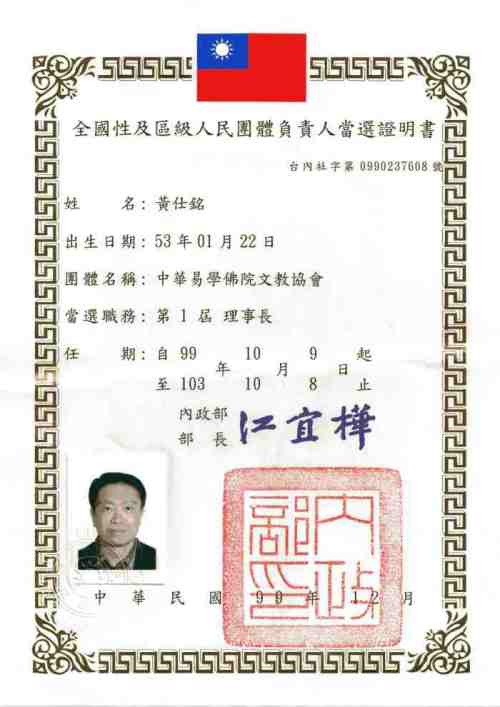 全國性及區級人民團體負責人當選證明書
台內社字第 0990237608 號
姓 名：黃仕銘
出生日期：53 年 01 月 22 日
團體名稱：中華易學佛院文教協會
當選職務：第 1 屆 理事長
任 期：自 99 年 10 月 9 日 起
至 103 年 10 月 8 日 止
內政部
部 長 江宜樺
中 華 民 國 99 年 12 月
內政部印